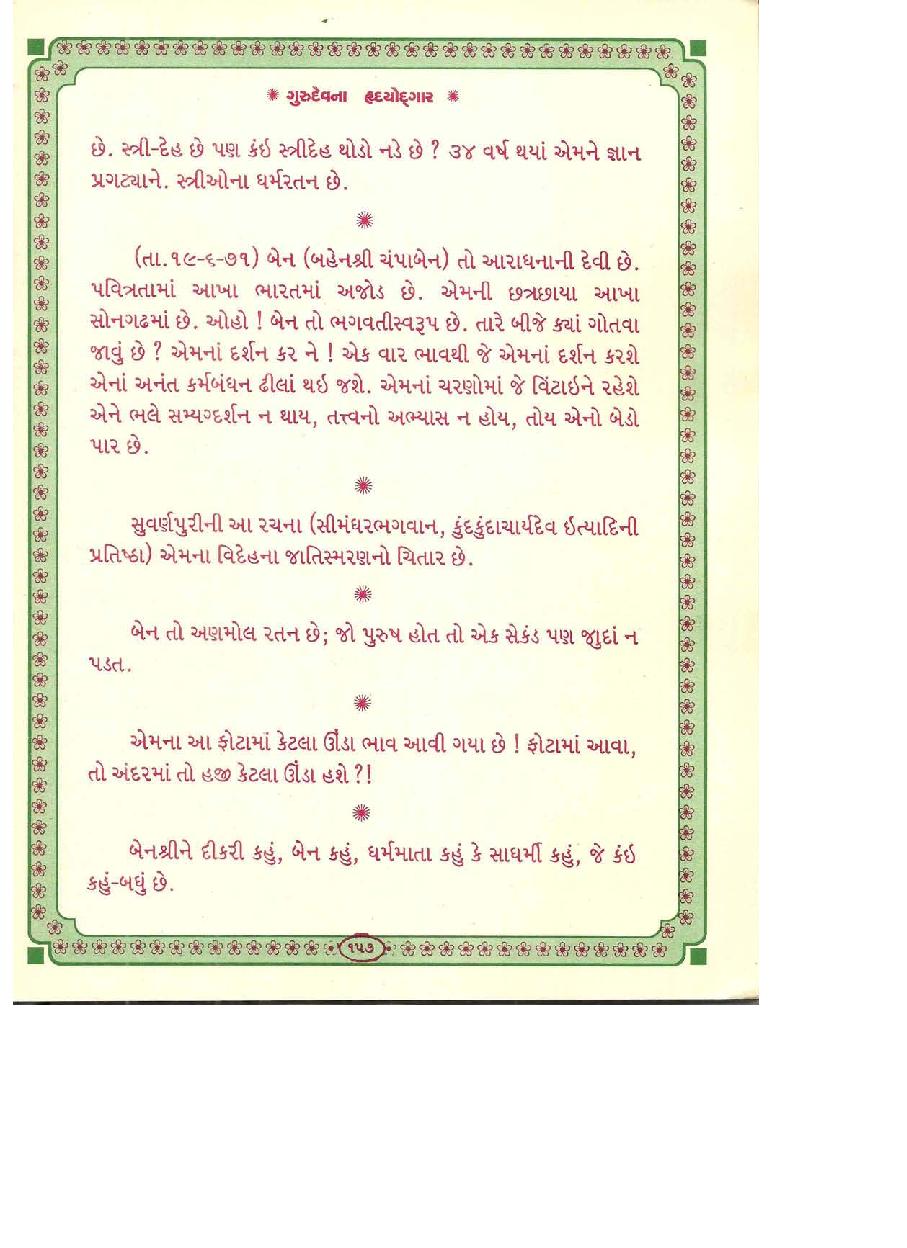 ગુરુદેવના હૃદયોદ્ગાર
છે. સ્ત્રી-દેહ છે પણ કંઇ સ્ત્રીદેહ થોડો નડે છે ? ૩૪ વર્ષ થયાં એમને જ્ઞાન
પ્રગટ્યાને. સ્ત્રીઓના ધર્મરતન છે.
(તા.૧૯-૬-૭૧) બેન (બહેનશ્રી ચંપાબેન) તો આરાધનાની દેવી છે.
પવિત્રતામાં આખા ભારતમાં અજોડ છે. એમની છત્રછાયા આખા
સોનગઢમાં છે. ઓહો ! બેન તો ભગવતીસ્વરૂપ છે. તારે બીજે ક્યાં ગોતવા
જાવું છે ? એમનાં દર્શન કર ને ! એક વાર ભાવથી જે એમનાં દર્શન કરશે
એનાં અનંત કર્મબંધન ઢીલાં થઇ જશે. એમનાં ચરણોમાં જે વિંટાઇને રહેશે
એને ભલે સમ્યગ્દર્શન ન થાય, તત્ત્વનો અભ્યાસ ન હોય, તોય એનો બેડો
પાર છે.
સુવર્ણપુરીની આ રચના (સીમંધરભગવાન, કુંદકુંદાચાર્યદેવ ઇત્યાદિની
પ્રતિષ્ઠા) એમના વિદેહના જાતિસ્મરણનો ચિતાર છે.
બેન તો અણમોલ રતન છે; જો પુરુષ હોત તો એક સેકંડ પણ જુદાં ન
પડત.
એમના આ ફોટામાં કેટલા ઊંડા ભાવ આવી ગયા છે ! ફોટામાં આવા,
તો અંદરમાં તો હજી કેટલા ઊંડા હશે ?!
બેનશ્રીને દીકરી કહું, બેન કહું, ધર્મમાતા કહું કે સાધર્મી કહું, જે કંઇ
કહું-બધું છે.
૧૫૭